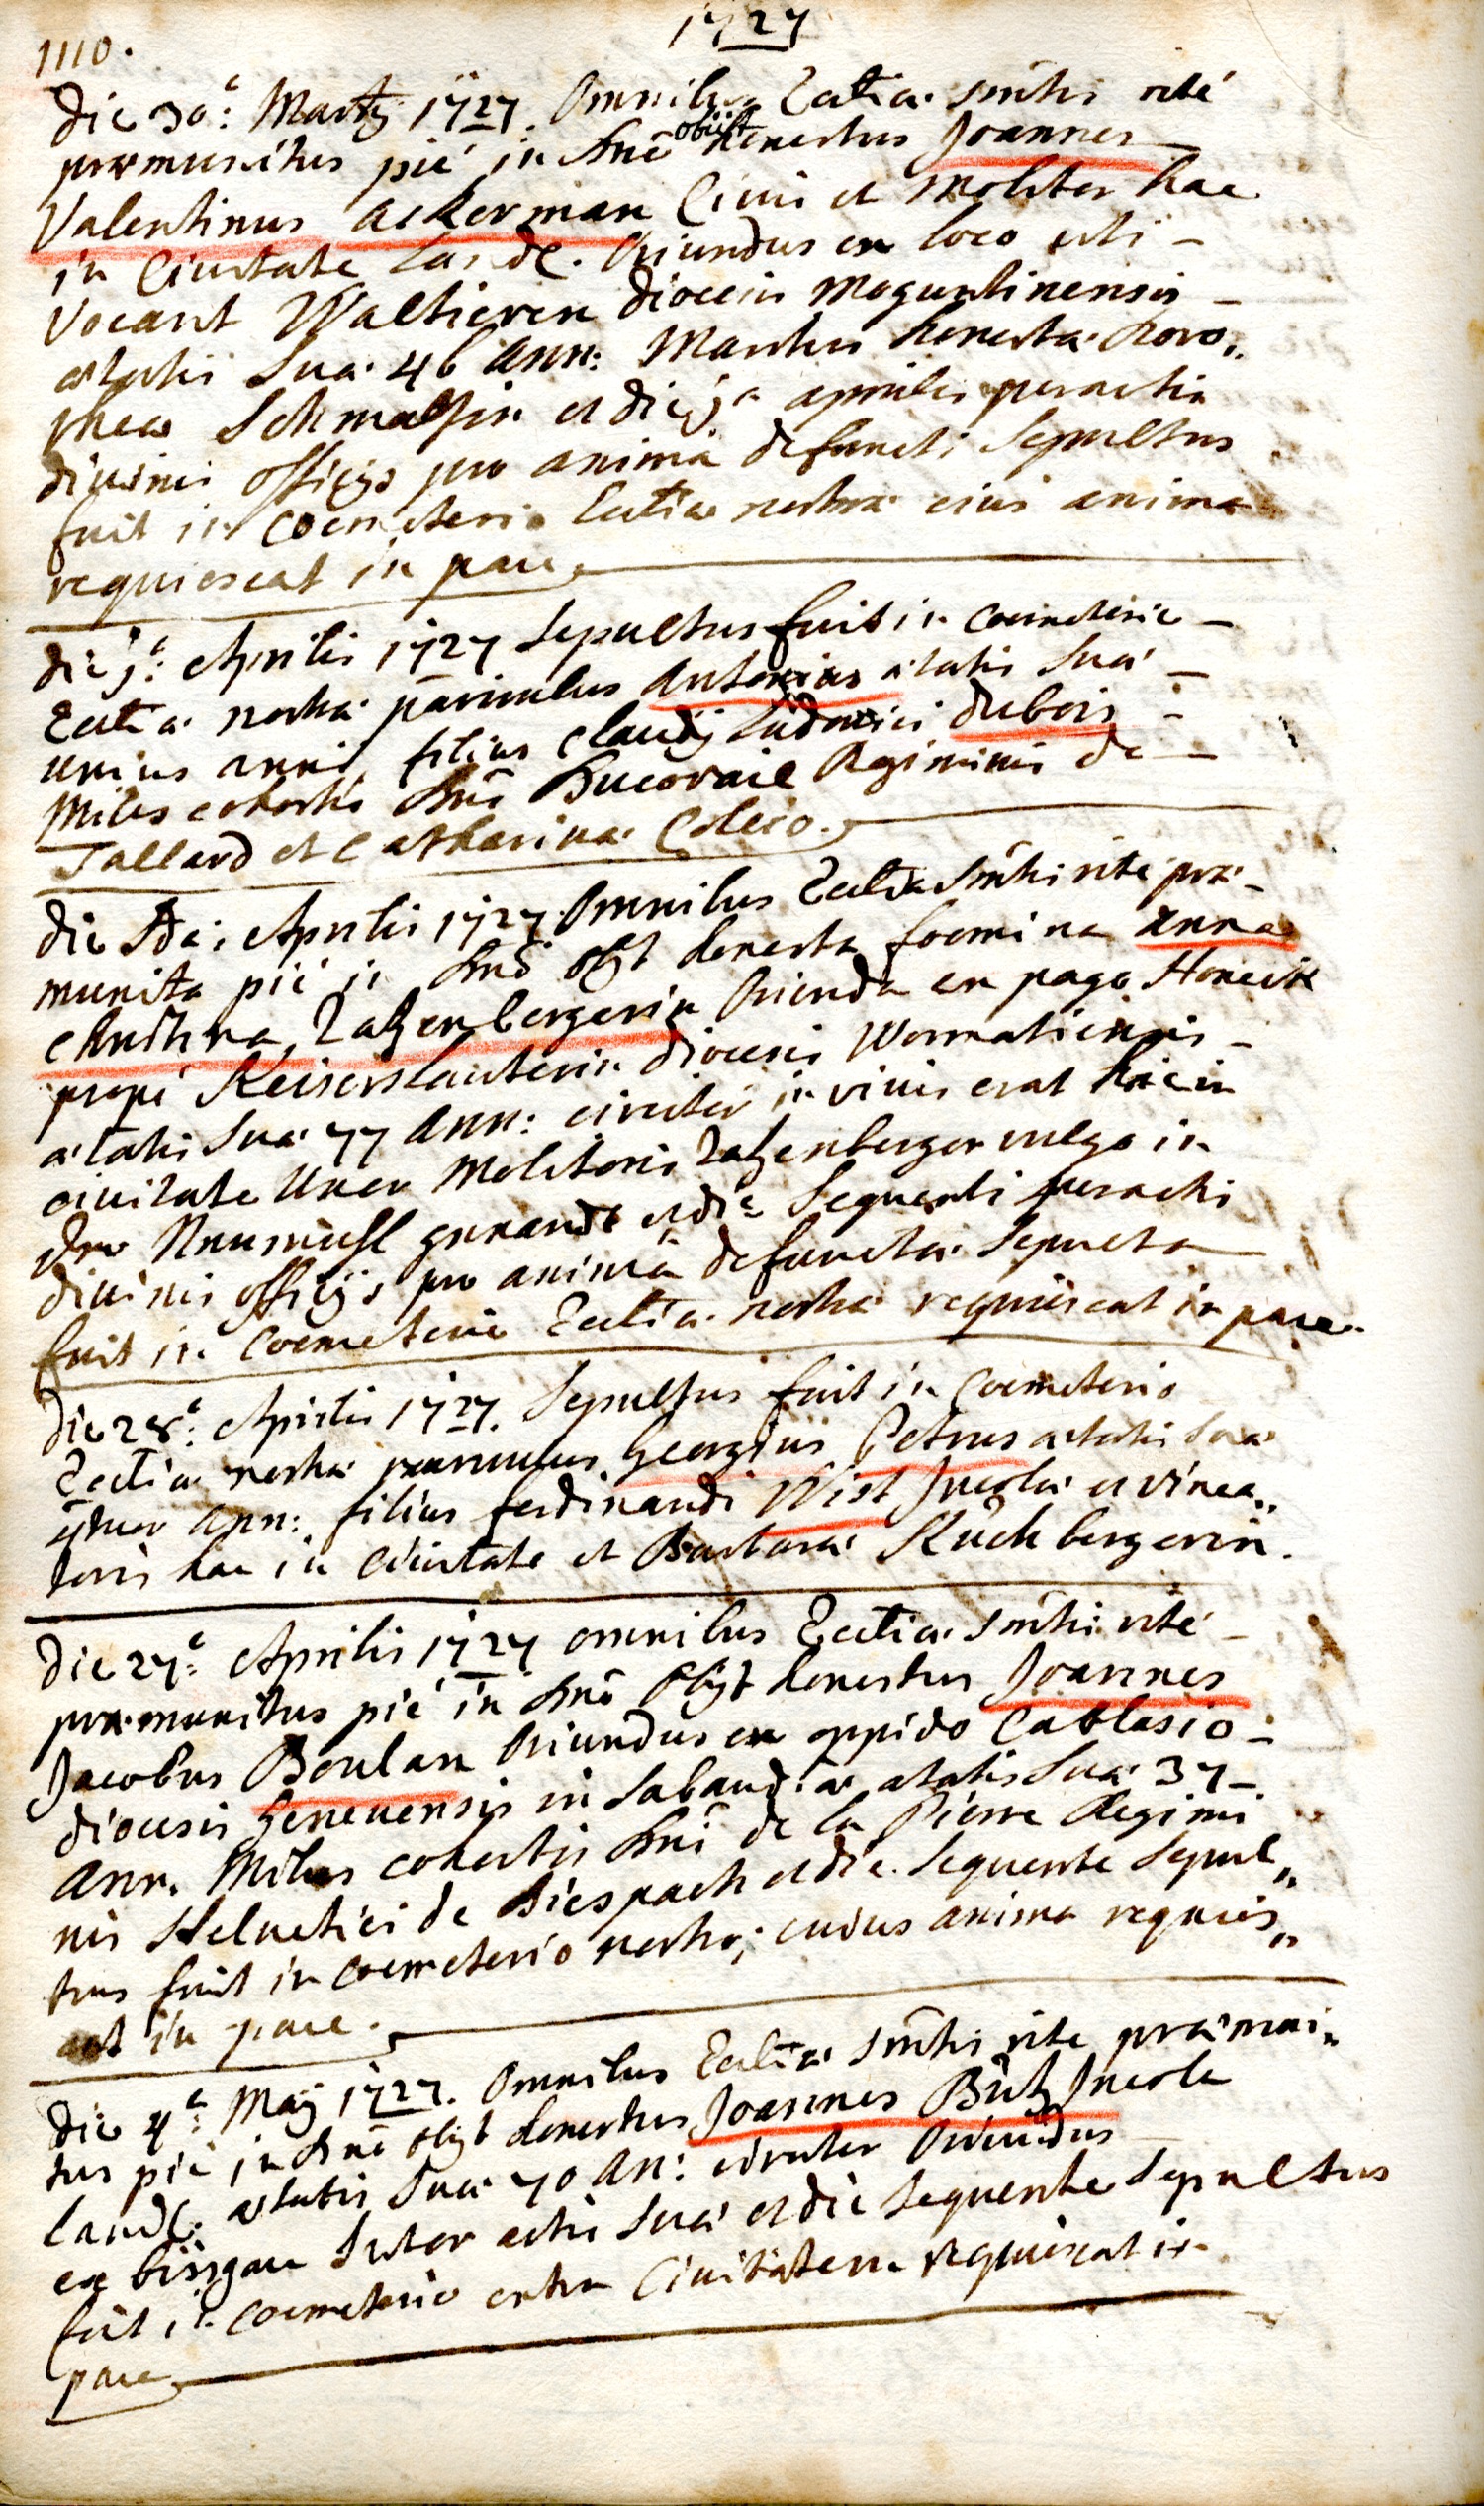 1727
1110.
Die 30.a Martij 1727. Omnibus Ecclia Smtis rité
praemunitus pié in Dno obijt honestus Joannes
Valentinus Ackerman Civis et Molitor hac
in Civitate Land. Oriundus ex loco uti
vocant Waltieren Dioecis Moguntinensis
aetatis Sua 46 Ann: Maritus honesta Doro„
thea Schmaltzin et die 1a aprilis peractis
divinis officijs pro anima defuncti Sepultus
fuit in Coemeterio Ecclia nostra eius anima
requiescat in pace
die 1.a Aprilis 1727 Sepultus fuit in Coemeterio
Ecclia nostra parvulus Antonius aetatis Sua
unius anni filius Claudij Ludovici Dubois
Miles cohortis Dni Ducoraie Regiminis de
Tallard et Catharina Coleco.
die 8va: Aprilis 1727 Omnibus Ecclia Smtis rite prae-
munita pié in Dno obijt honesta foemina Anna
Chudtina Zatzenbergerin Oriunda ex pago Honeck
propé Keiserslauterin Diocesis Wormatiensis
aetatis Sua 77 Ann: circiter in vivis erat hac in
civitate Uxor Molitoris Zatzenberger vulgo in
der Neumühl genandt et die Sequenti peractis
divinis officijs pro anima defuncta Sepulta
fuit in Coemeterio Ecclia nostra requiescat in pace.
Die 28.a Aprilis 1727. Sepultus fuit in Coemeterio
Ecclia nostra parvulus Georgius Petrus aetatis Sua
4tuor Ann: filius ferdinandi Wist Incola et vinea„
toris hac in Civitate et Barbara Küchbergerin.
Die 27.a Aprilis 1727 omnibus Ecclia Smtis rité
praemunitus pié in Dno obijt honestus Joannes
Jacobus Boulan Oriundus ex oppido Cablasio
diocesis Genevensis in Sabaudia aetatis Sua 37
Ann. Miles cohortis Dni de la Pierre Regimi
nis Helvetici de Diespach et die Sequente Sepul„
tus fuit in Coemeterio nostro; cuius anima requies„
cat in pace.
Die 4.a Maij 1727. Omnibus Ecclia Smtis rite praemuni„
tus pié in Dno obijt honestus Joannes Bütz Incola
Land: aetatis Sua 70 An: circiter Oriundus
ex bissgau Sutor artis Sua et die Sequente Sepultus
fuit in Coemeterio extra Civitatem requiescat in
pace